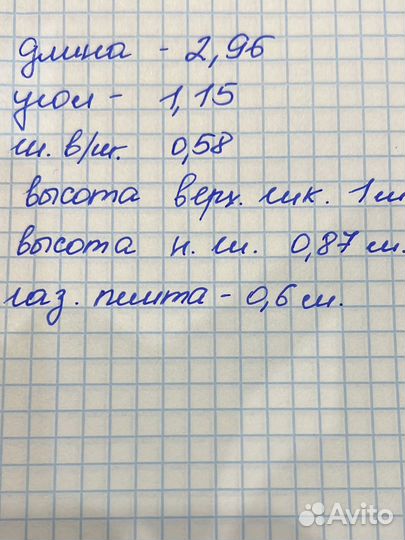 длина - 2,96
угол - 1,15
ш. в/ш. 0,58
высота верх. шк. 1 м
высота н. ш. 0,87 м.
газ. плита - 0,6 м.
Avito